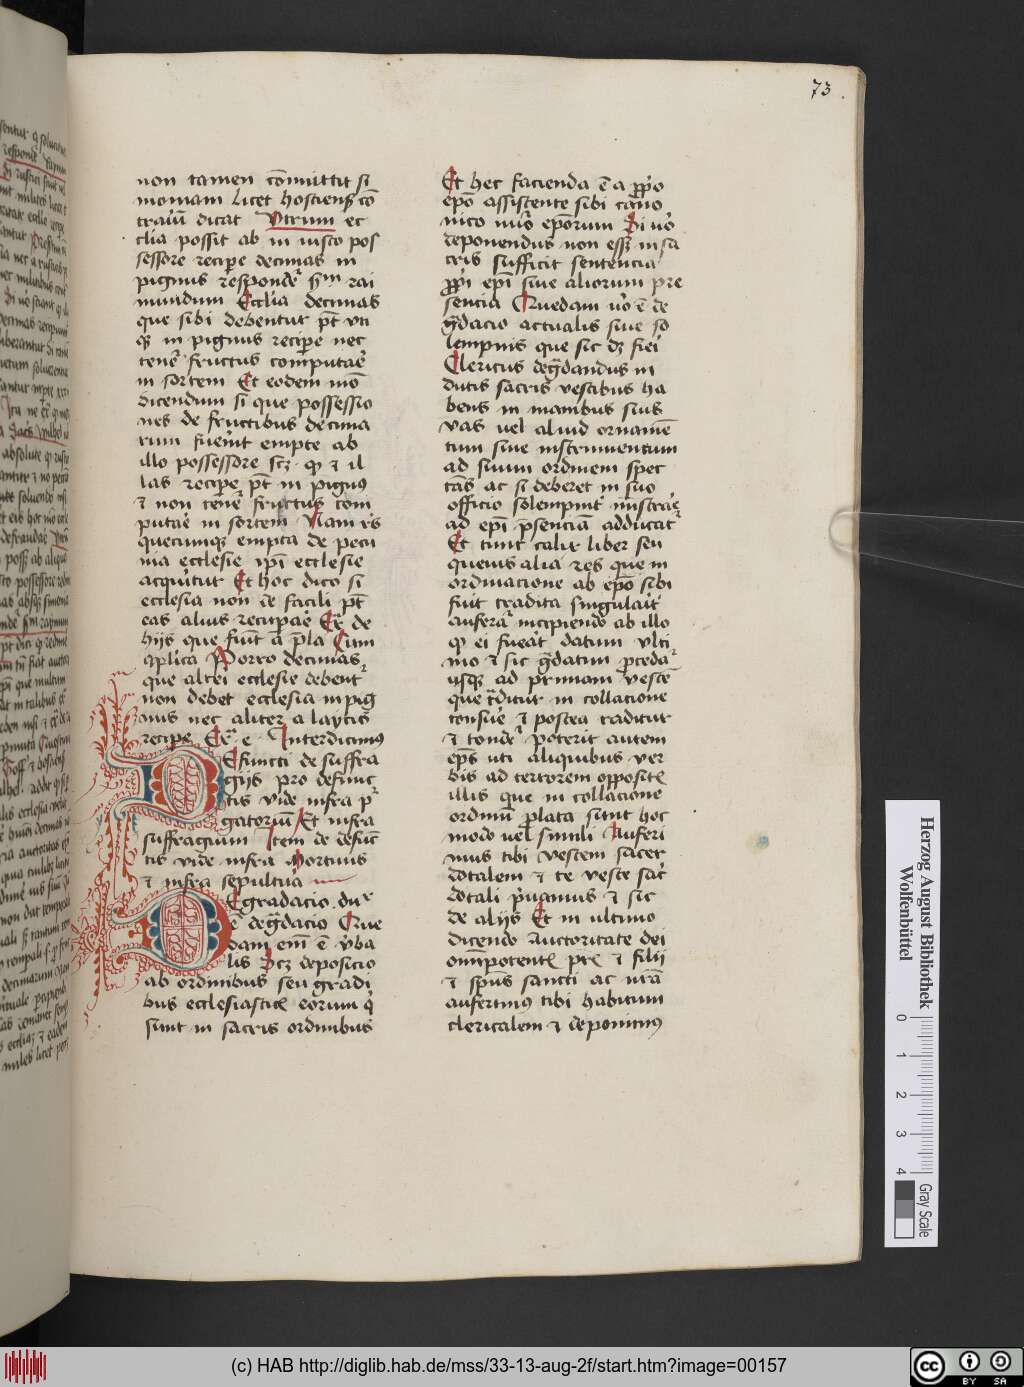 73.
non tamen cõmittit si
moniam licet hostienß cõ
trariũ dicat Vtrum ec
clia possit ab in iusto pos
sessore recipe decimas in
pignus respondeͬ ßm rai
mundum Ecclia decimas
que sibi debentur pt̃ vti
qꝫ in pignus recipe nec
teneͬ fructus computaͤ
in sortem Et eodem mõ
dicendum si que possessio
nes de fructibus decima
rum fuerit empte ab
illo possessore scꝫ qꝫ ⁊ il
las recipe pt̃ in pignꝯ
⁊ non teneͬ fructus com
putaͤ in sortem Nam res
quecumqꝫ empta de pecu
nia ecclesie ip̃i ecclesie
acquiͬtur Et hoc dico si
ecclesia non de facili pt̃
eas alius recupaͤ Ex̃ de
hijs que fiũt a p̃la Cum
aplica Porro decimas
que alteri ecclesie debent
non debet ecclesia in pig
nus nec aliter a laycis
recipe Ex̃ e Interdicimꝯ
Defuncti de suffra
gijs pro defunc
tis vide infra pͬ
gatoriũ Et infra
suffragium Item de defũc
tis vide infra Mortuus
⁊ infra sepultura
Degradacio. dur
ẽ degͣdacio Que
dam em̃ ẽ vͬba
lis Scꝫ deposicio
ab ordinibus seu gradi
bus ecclesiastic̃ eorum q̃
sunt in sacris ordinibus
Et hec facienda ẽ a ꝓprio
ep̃o assistente sibi cano
nico nũo ep̃orum Si vͦo
deponendus non esset in sa
cris sufficit sentencia
ꝓprij ep̃i sine aliorum pre
sencia Quedam vͦo ẽ de
gͣdacio actualis siue so
lempnis que sic dꝫ fieri
Clericus degͣdandus in
dutis sacris vestibus ha
bens in manibus suis
vas uel aliud ornamẽ
tum siue instrumentum
ad suum ordinem spec
tãs ac si deberet in suo
officio solempniͭ mĩstraͤ
ad ep̃i p̃senciã adducat
Et tunc calix liber seu
queuis alia res que in
ordinacione ab ep̃o sibi
fuit tradita singulariͭ
auferaͬ incipiendo ab illo
qꝫ ei fueat datum vlti
mo ⁊ sic gͣdatim ꝓcedaͬ
usqꝫ ad primam vestẽ
que tͣditur in collacione
tonsuͤ ⁊ postea raditur
⁊ tondeͬ poterit autem
ep̃s uti aliquibus ver
bis ad terrorem opposit̃
illis que in collacione
ordinũ plata sunt hoc
modo uel simili Auferi
mus tibi vestem sacer
dotalem ⁊ te veste sac̃
dotali pͥuamus ⁊ sic
de alijs Et in ultimo
dicendo Auctoritate dei
omipotent̃ pr̃is ⁊ filij
⁊ sp̃us sancti ac nr̃a
aufertimꝯ tibi habitum
clericalem ⁊ deponimꝯ
Herzog August Bibliothek
Wolfenbüttel
0 1 2 3 4
Gray Scale
(c) HAB http://diglib.hab.de/mss/33-13-aug-2f/start.htm?image=00157
cc BY SA